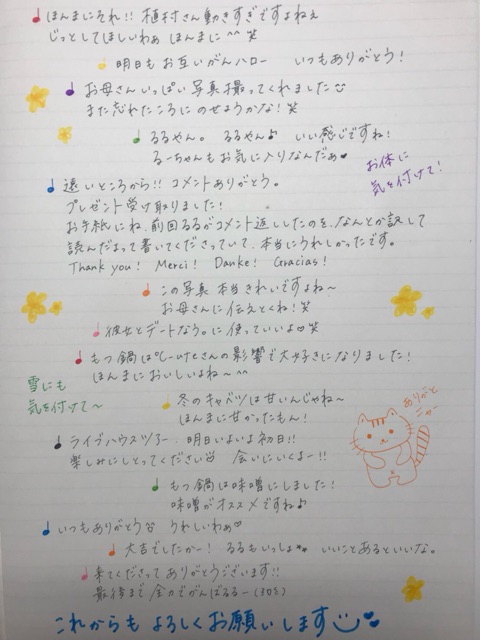 ほんまにそれ!! 植村さん動きすぎですよねぇ
じっとしてほしいわぁ ほんまに^^笑
明日もお互いがんハロー いつもありがとう!
お母さんいっぱい写真撮ってくれました
また忘れたころにのせようかな!笑
るるやん。 るるやん♪ いい感じですね!
るーちゃんもお気に入りなんだぁ♥
お体に
気を付けて!
遠いところから!! コメントありがとう。
プレゼント受け取りました!
お手紙にね、前回るるがコメント返ししたのを、なんとか訳して
読んだよって書いてくださっていて、本当にうれしかったです。
Thank you! Merci! Danke! Gracias!
この写真本当きれいですよね~
お母さんに伝えとくね!笑
彼女とデートなう。に使っていいよ♡笑
もつ鍋は℃-uteさんの影響で大好きになりました!
ほんまにおいしいよね~^^
雪にも
気を付けて~
冬のキャベツは甘いんじゃね~
ほんまに甘かったもん!
ありがと
ニャー
ライブハウスツアー、明日いよいよ初日!!
楽しみにしとってください 会いにいくよー!!
もつ鍋は味噌にしました!
味噌がオススメですね♪
いつもありがとう うれしいわぁ♡
大吉でしたかー! るるもいっしょ いいことあるといいな。
来てくださってありがとうございます!!
最後まで全力でがんばるるー(30%)
これからもよろしくお願いします